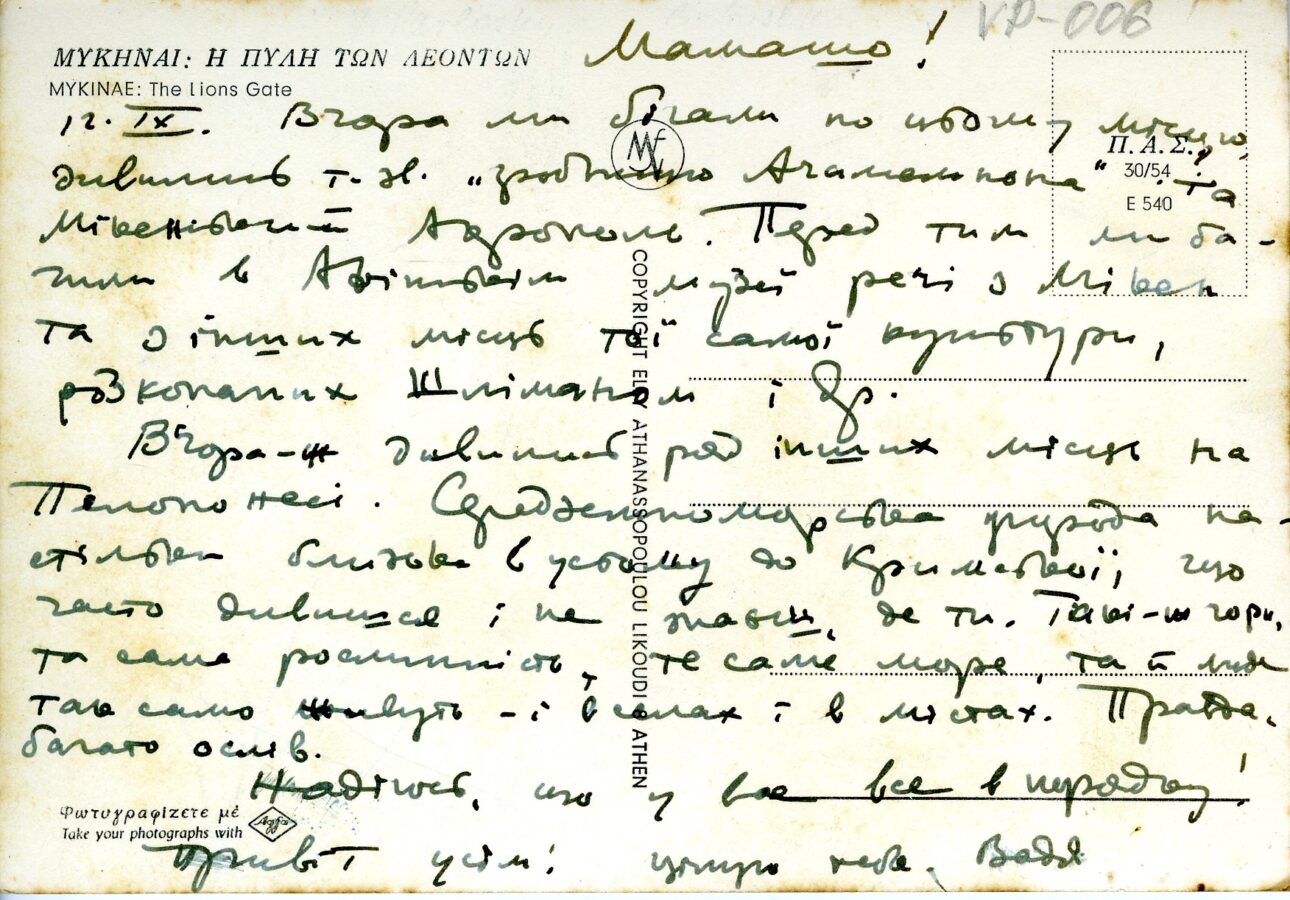 VP-006
Мамашо!
ΜΥΚΗΝΑΙ: Η ΠΥΛΗ ΤΩΝ ΛΕΟΝΤΩΝ
MYKINAE: The Lions Gate
12. IX. Вчора ми бігали по цьому місцю,
дивились т. зв. „гробницю Агамемнона“ та
Мікенський Акрополь. Перед тим ми ба-
чили в Афінськім музеї речі з Мікен
та з інших місць тої самої культури,
розкопаних Шліманом і др.
Вчора-ж дивились ряд інших місць на
Пелопонесі. Середземноморська природа на-
стільки близька в усьому до Кримської, що
часто дивишся і не знаєш, де ти. Такі-ж гори,
та сама рослинність, те саме море, та й люди
так само живуть - і в селах і в містах. Правда,
багато ослів.
Надіюсь, що у вас все в порядку!
Привіт усім! цілую тебе. Вадя
Π.Α.Σ.
30/54
E 540
COPYRIGHT ELLY ATHANASSOPOULOU LIKOUDI ATHEN
Φωτογραφίζετε μέ
Take your photographs with
Agfa